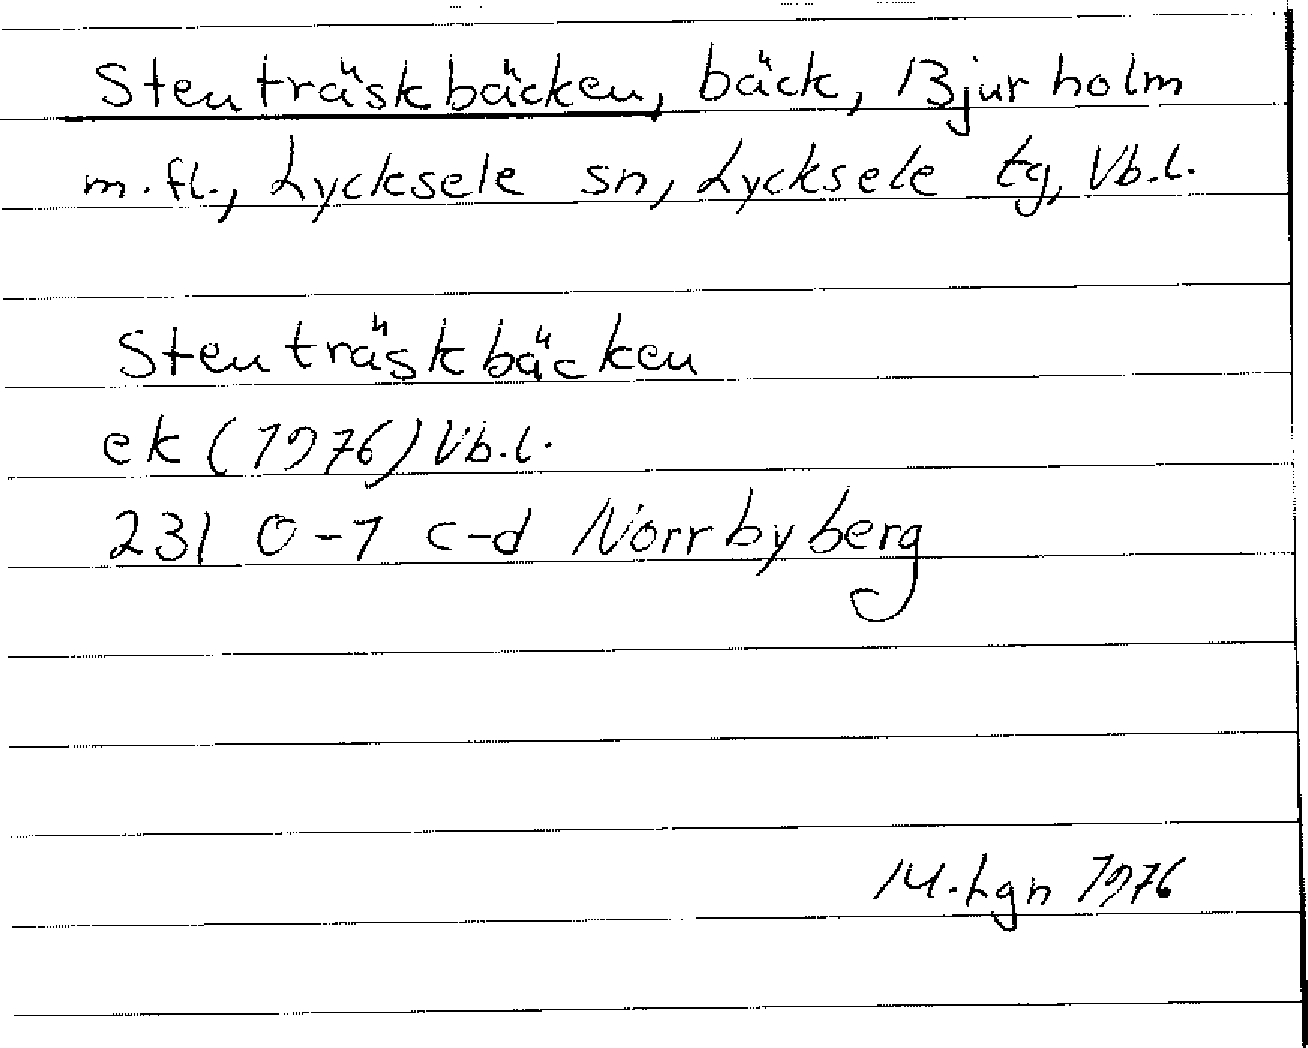 Stenträskbäcken, bäck, Bjurholm
m.fl., Lycksele sn, Lycksele tg, Vb.l.
Stenträskbäcken
ek (1976) Vb.l.
231 0-1 c-d Norrbyberg
M.Lgn 1976